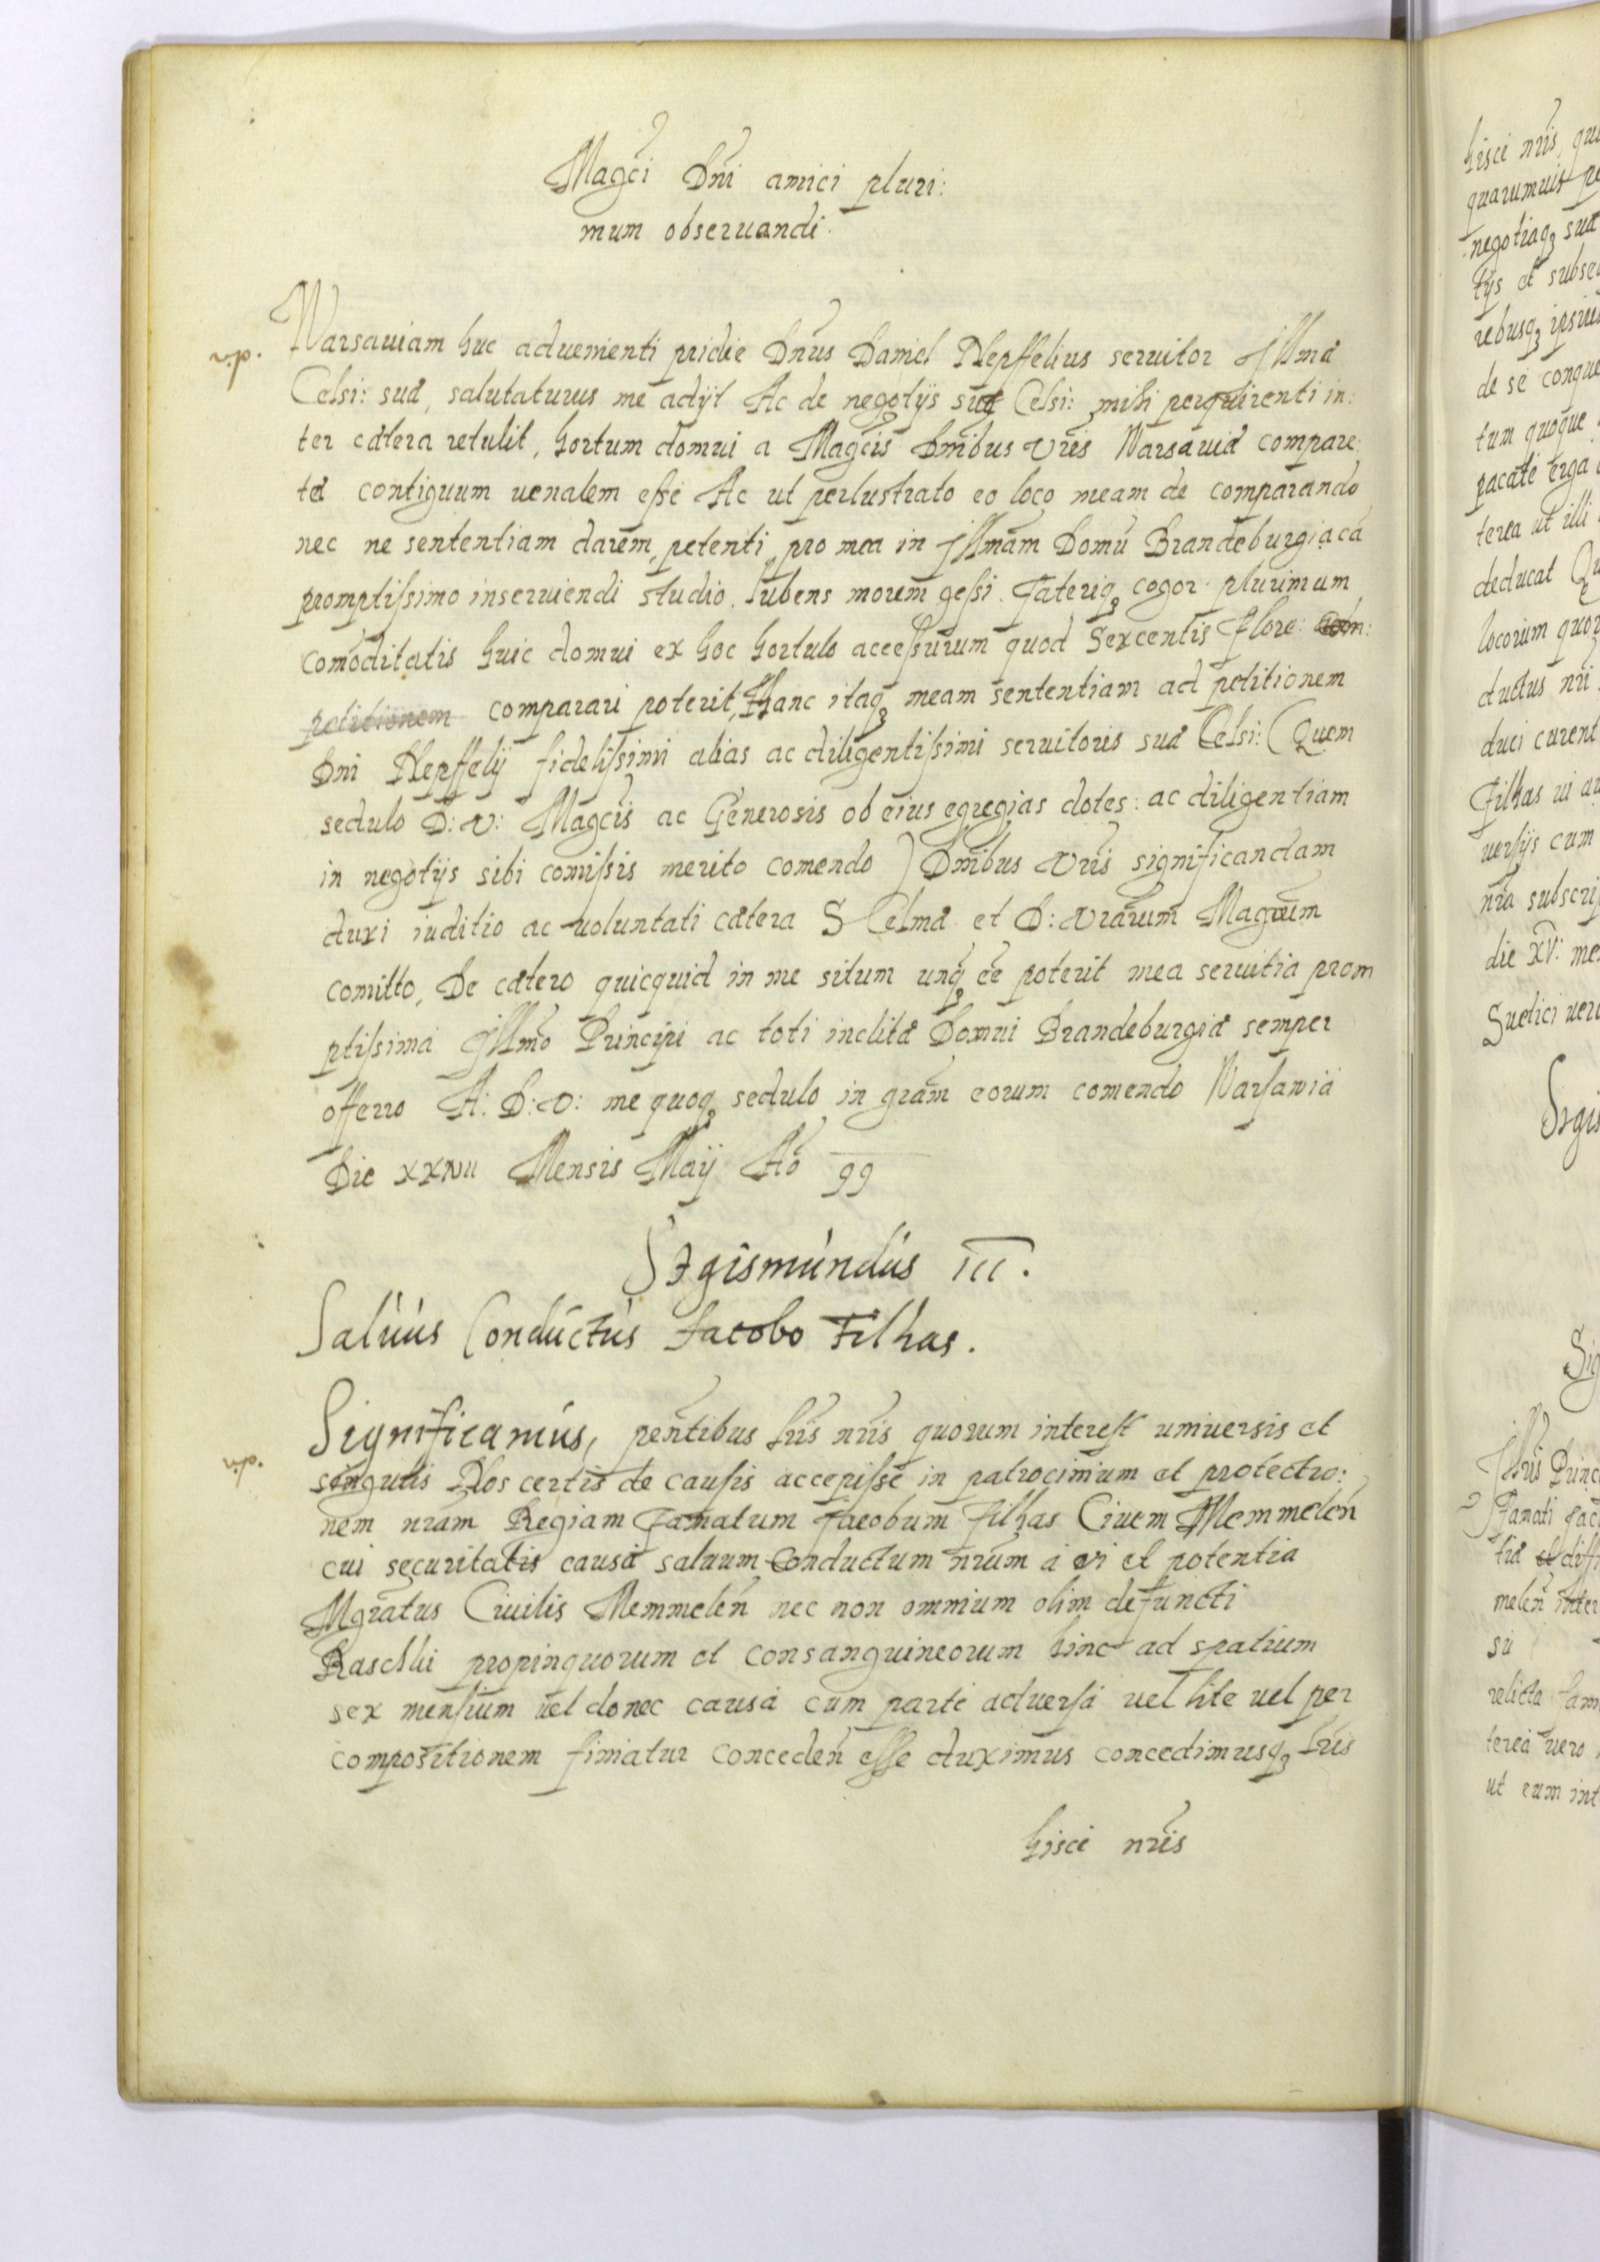 Magci Dni amici pluri:
mum obseruandi.
v.p.
Warsauiam huc aduenienti pridie Dnus Daniel Nepffelius seruitor Illmæ
Celsi: suæ, salutaturus me adijt Ac de negotijs suæ Celsi: mihi perquirenti in:
ter cætera retulit, hortum domui a Magcis Dnibus Vris Warsauiæ compare:
tæ contiguum uenalem esse Ac ut perlustrato eo loco meam de comparando
nec ne sententiam darem, petenti, pro mea in Illmam Domu Brandeburgiaca
promptissimo inseruiendi studio, lubens morem gessi. Faterisq cogor plurimum
comoditatis huic domui ex hoc hortulo accessurum quod Sexcentis Flore:
petitionem comparari poterit, Hanc itaq meam sententiam ad petitionem
Dni Nepffelij fidelissimi alias ac diligentissimi seruitoris suæ Celsi: (Quem
sedulo D: V: Magcis ac Generosis ob eius egregias dotes: ac diligentiam
in negotijs sibi comissis merito comendo) Dnibus Vris significandam
duxi iuditio ac uoluntati cætera S Celmæ et D: Vrarum Magcum
comitto, De cætero quicquid in me situm unq ee poterit mea seruitia prom
ptissima Illmo Principi ac toti inclitæ Domui Brandeburgiæ semper
offerro A: D: V: me quoq sedulo in gram eorum comendo Warsawiæ
Die XXVII Mensis Maij Ao 99
Sigismundus III.
Saluus Conductus Jacobo Filhas.
v.p.
Significamus, pentibus lris nris quorum interest uniuersis et
singulis Nos certis de causis accepisse in patrocinium et protectio:
nem nram Regiam Famatum Jacobum Filhas Ciuem Memmelen
cui securitatis causa saluum conductum nrum a vi et potentia
Mgratus Ciuilis Memmelen nec non omnium olim defuncti
Raschki propinquorum et consanguineorum hinc ad spatium
sex mensium uel donec causa cum parte aduersa uel lite uel per
compositionem finiatur conceden esse duximus concedimusq lris
hisce nris
hisce nris, qui
quarumuis
negotiaq sua
tijs et
rebusq ipsius
de se
tum quoque
pacate erga
terea ut illi
deducat
locorum
ductus nri
duci curent
Filhas ui
uersijs cum
nra
die XV: me
Suetici
Sigis
Sig
Illris Princ
Famati Jac
tiæ et
melen inter
su
relicta fam
terea uero
ut eum int